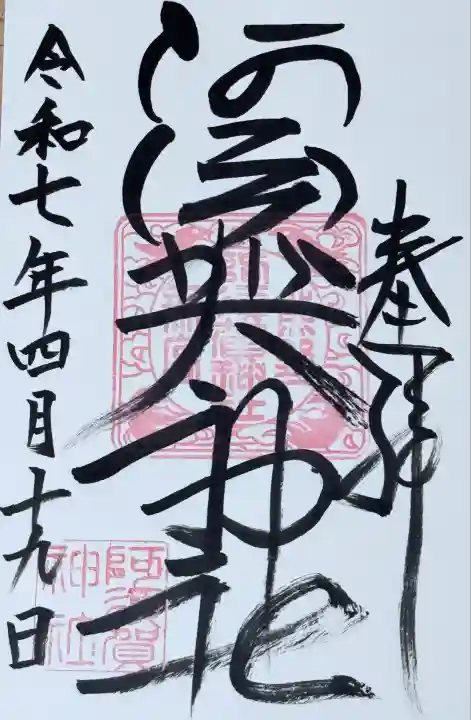 奉拝
阿須賀神社
阿須賀
神社
令和七年四月十九日